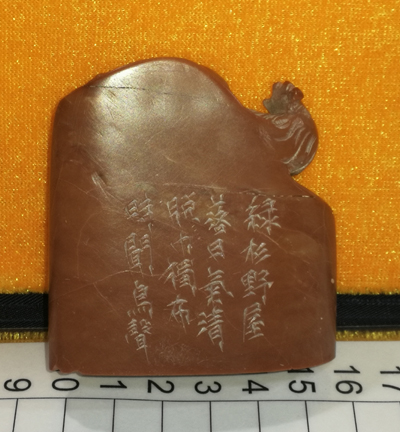 綠杉野屋
落日氣清
脫巾獨步
時聞鳥聲
9 0 1 2 3 4 15 16 17